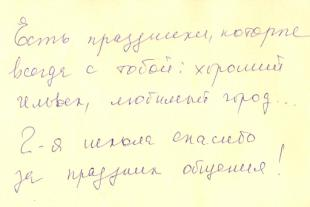 Есть праздники, которые
всегда с тобой: хороший
человек, любимый город...
2-я школа спасибо
за праздник общения!